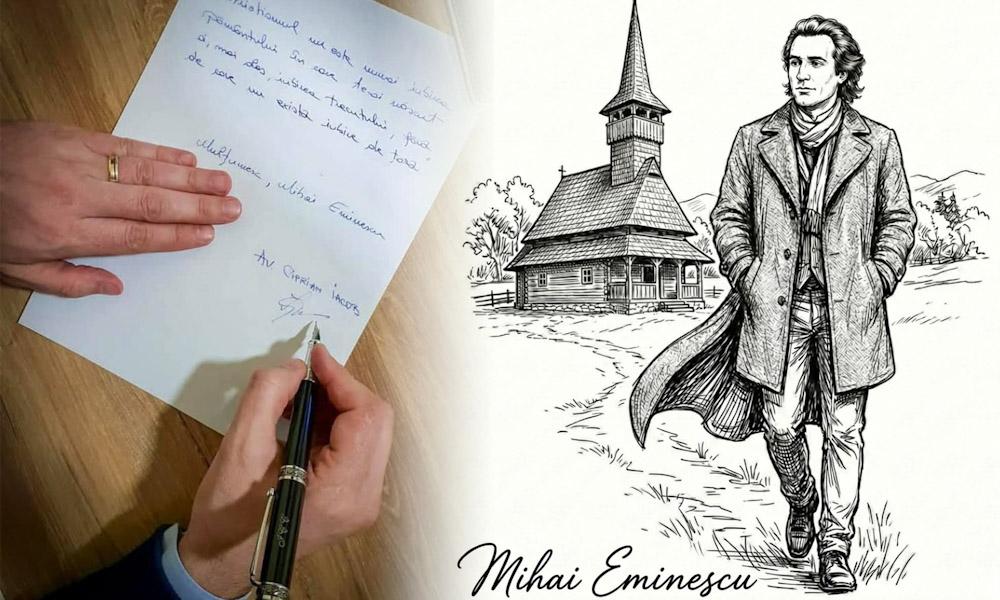 nu este numai iubirea
pământului în care te-ai născut
ci, mai ales, iubirea trecutului, fără
de care nu există iubire de țară"
Mulțumesc, Mihai Eminescu
Av. CIPRIAN IACOB
Mihai Eminescu